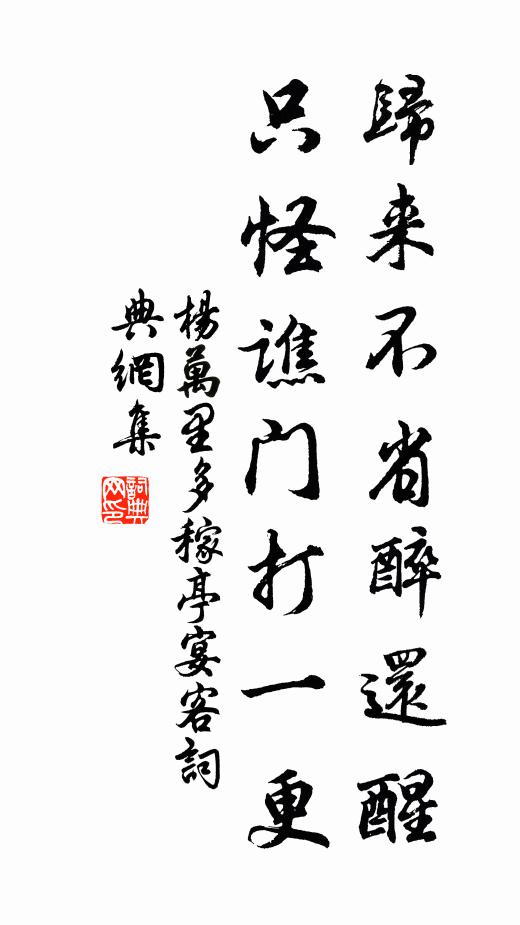 歸来不省醉還醒
只怪譙门打一更
楊萬里多稼亭宴客詞
典網集
詞典
网印